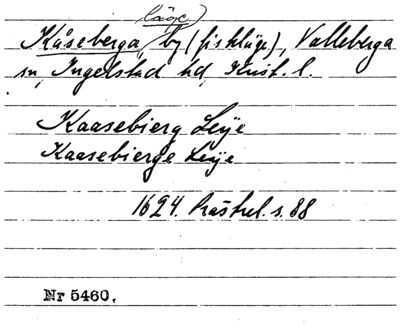 läge
Kåseberga, by (fiskläge), Valleberga
sn, Ingelstad hd, Krist. l.
Kaasebierg Leije
Kaasebierge Leije
1624. s. 88
Nr 5460.